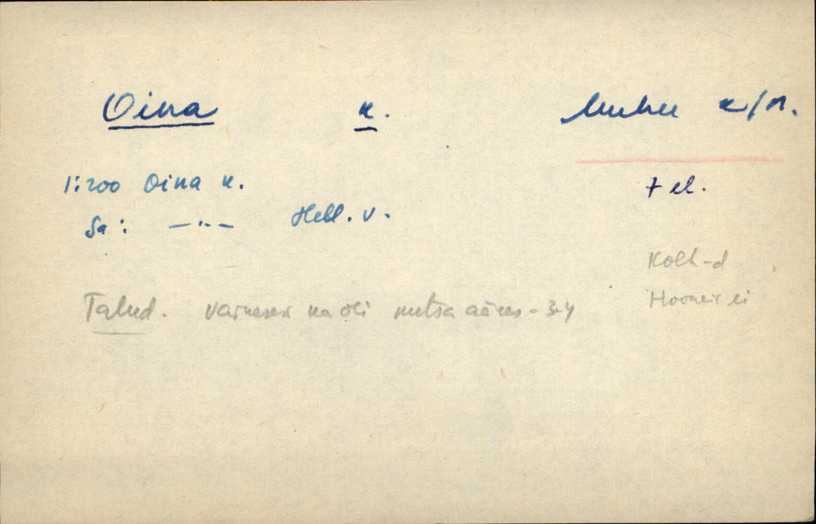 Oina k. Muhu k/n.
1:200 Oina k.
7 el.
Sa: —"— Hell. v.
Kolh-d
Talud. varnesex na oli metsa ääres - 3-4
Hooneir ei